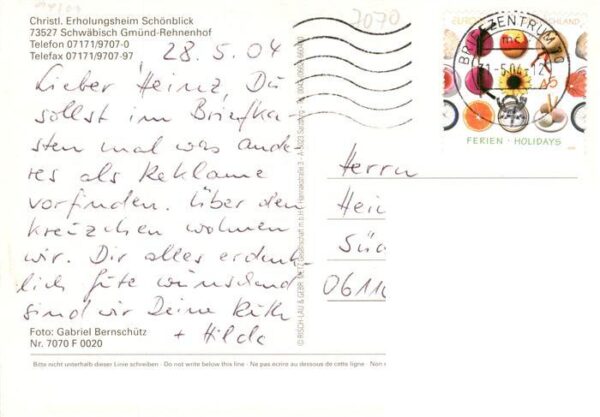 Christl. Erholungsheim Schönblick
73527 Schwäbisch Gmünd-Rehnenhof
Telefon 07171/9707-0
Telefax 07171/9707-97
28.5.04
Lieber Heinz, Du
sollst im Briefka-
sten mal was ande-
res als Reklame
vorfinden. Über den
kreuzchen wohnen
wir. Dir alles erdenk-
lich Gute wünschend
sind wir Deine Ruth
+ Hilde
Foto: Gabriel Bernschütz
Nr. 7070 F 0020
7070
© RISCH-LAU & GEBR. METZ Gesellschaft m.b.H.
BRIEFZENTRUM
-5.04-12
FERIEN · HOLIDAYS
Herrn
Hei
Sü
0611
Bitte nicht unterhalb dieser Linie schreiben · Do not write below this line · Ne pas ecrire au dessous de cette ligne · Non